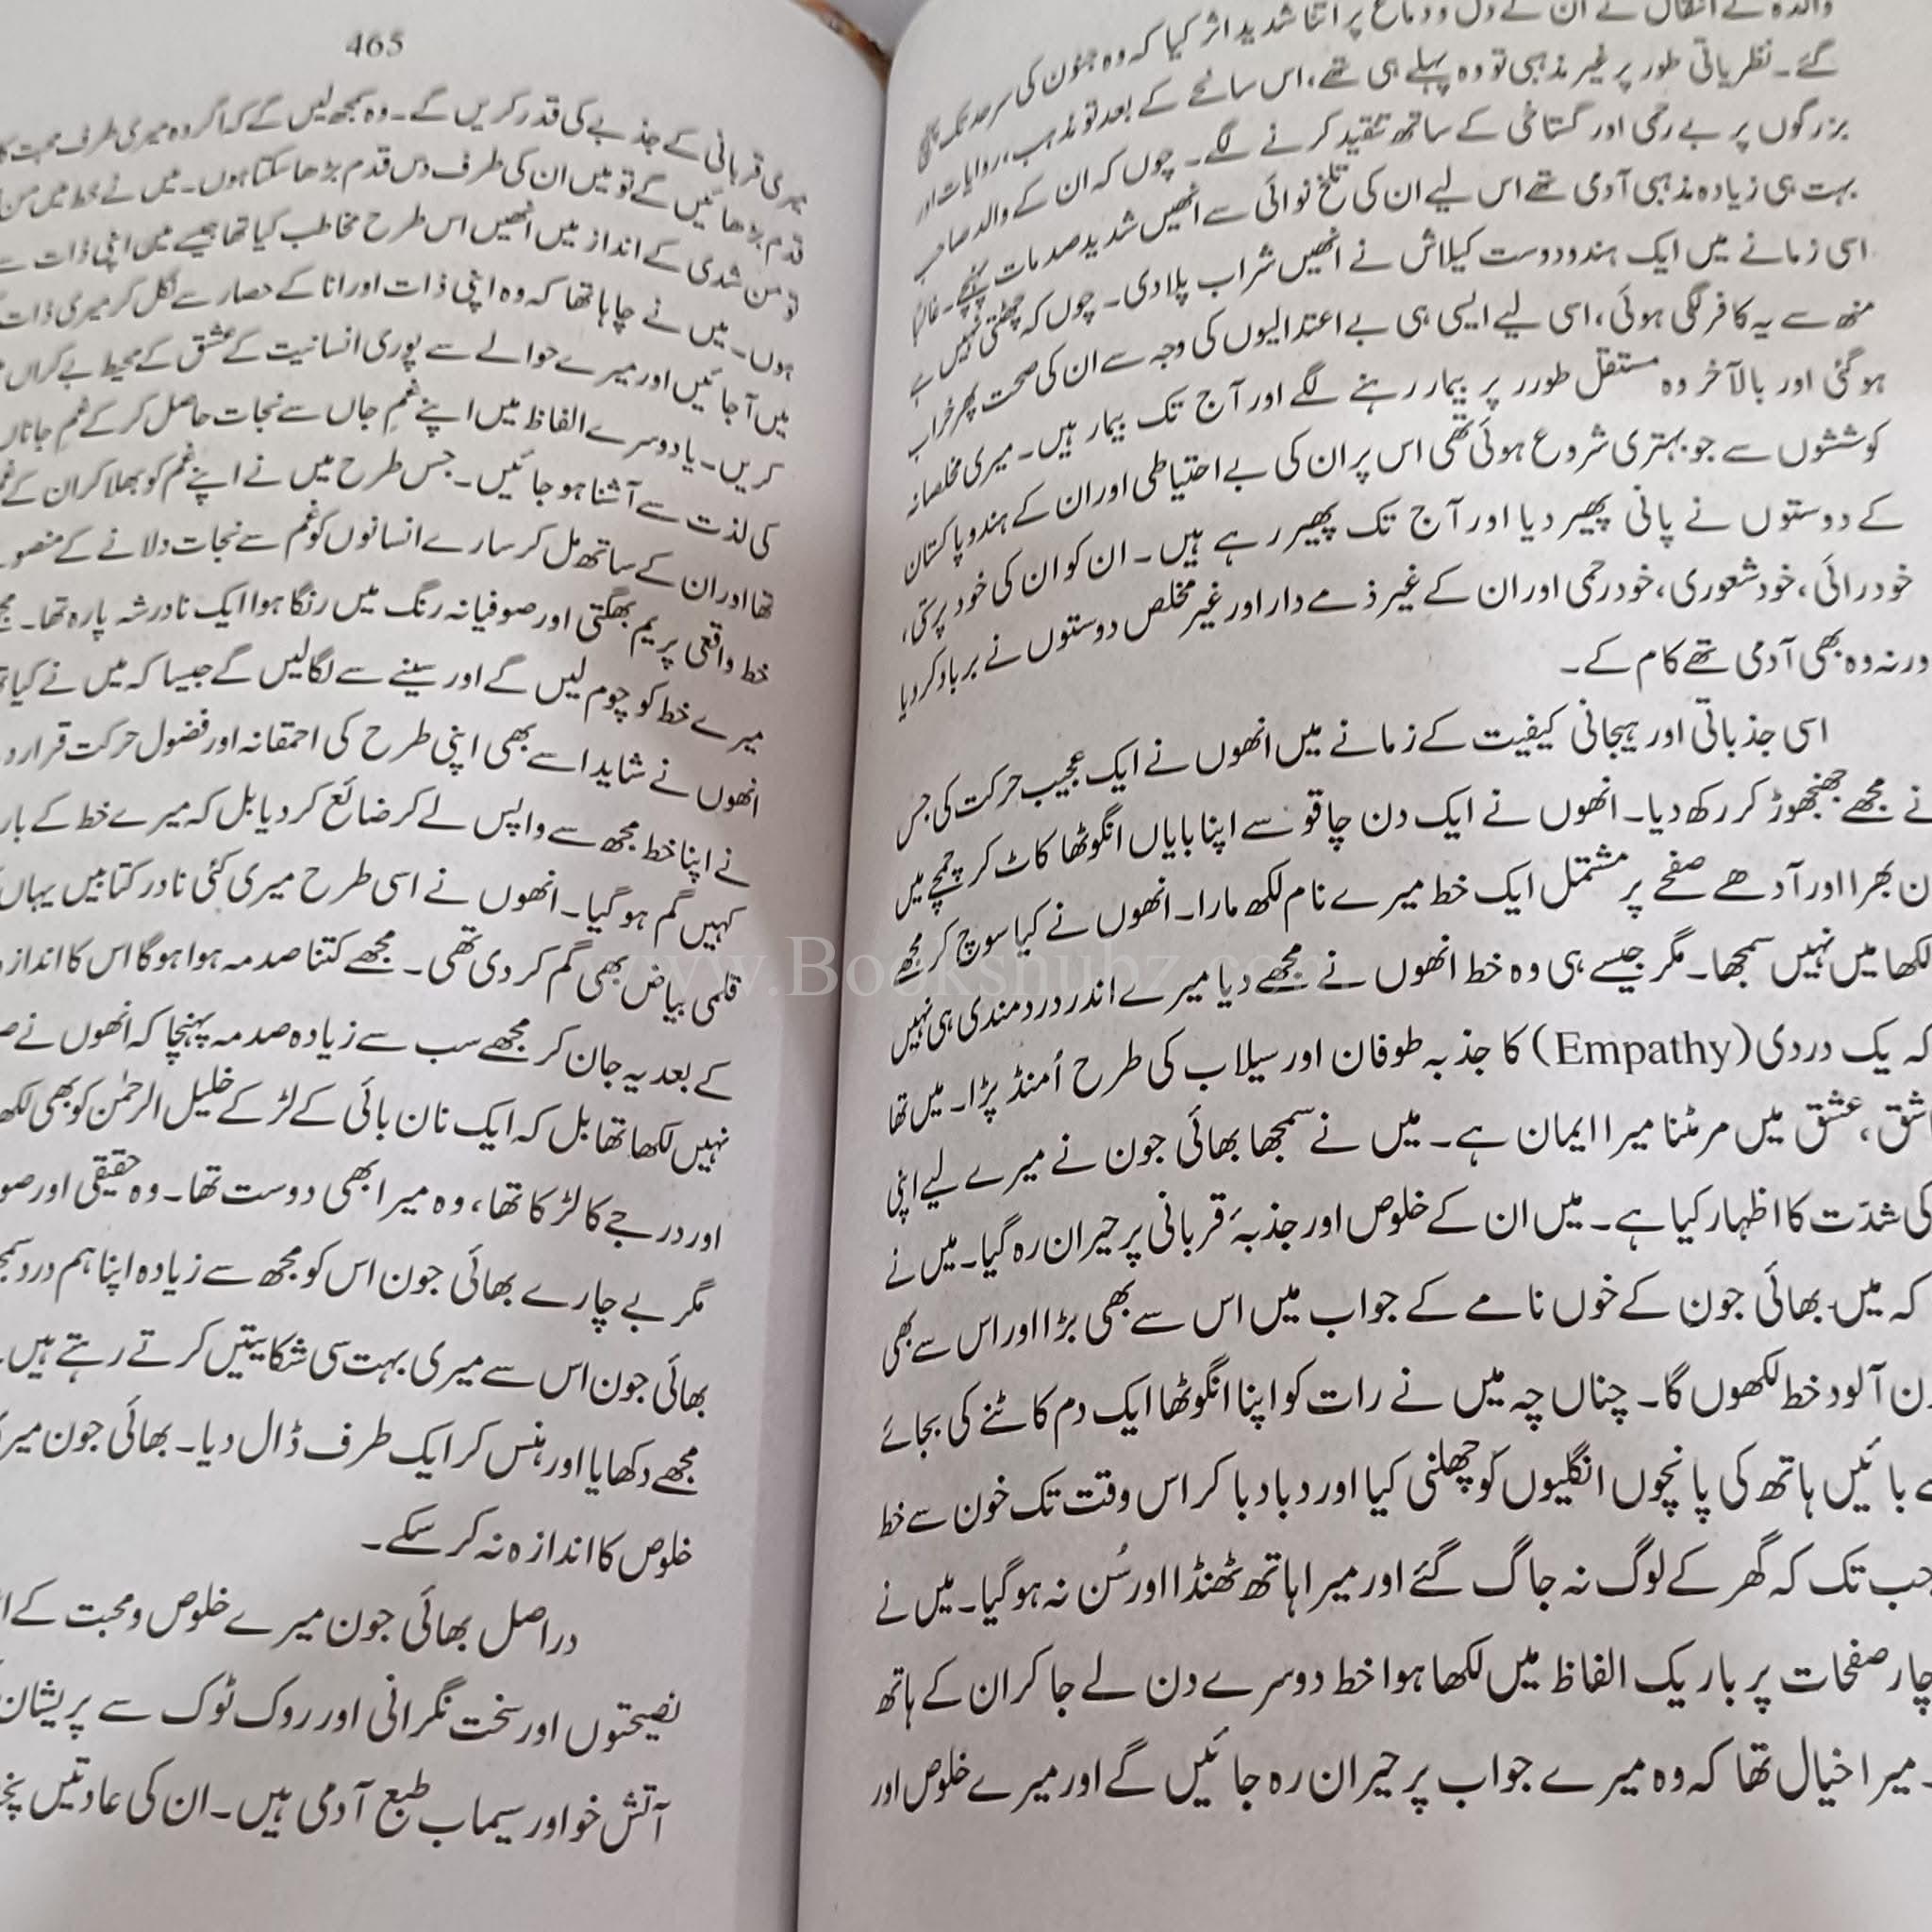 والدہ کے انتقال نے ان کے دل و دماغ پر اتنا شدید اثر کیا کہ وہ جنون کی سرحد تک پہنچ
گئے۔ نظریاتی طور پر غیر مذہبی تو وہ پہلے ہی تھے، اس سانحے کے بعد تو مذہب، روایات اور
بزرگوں پر بے رحمی اور گستاخی کے ساتھ تنقید کرنے لگے۔ چوں کہ ان کے والد صاحب
بہت ہی زیادہ مذہبی آدمی تھے اس لیے ان کی تلخ نوائی سے انھیں شدید صدمات پہنچے۔ غالباً
اسی زمانے میں ایک ہندو دوست کیلاش نے انھیں شراب پلا دی۔ چوں کہ چھٹتی نہیں ہے
منھ سے یہ کافر لگی ہوئی، اسی لیے ایسی ہی بے اعتدالیوں کی وجہ سے ان کی صحت پھر خراب
ہو گئی اور بالآخر وہ مستقل طورر پر بیمار رہنے لگے اور آج تک بیمار ہیں۔ میری مخلصانہ
کوششوں سے جو بہتری شروع ہوئی تھی اس پر ان کی بے احتیاطی اور ان کے ہندو پاکستان
کے دوستوں نے پانی پھیر دیا اور آج تک پھیر رہے ہیں۔ ان کو ان کی خود پرستی،
خودرائی، خود شعوری، خود رحمی اور ان کے غیر ذمے دار اور غیر مخلص دوستوں نے برباد کر دیا
ورنہ وہ بھی آدمی تھے کام کے۔
اسی جذباتی اور ہیجانی کیفیت کے زمانے میں انھوں نے ایک عجیب حرکت کی جس
نے مجھے جھنجھوڑ کر رکھ دیا۔ انھوں نے ایک دن چاقو سے اپنا بایاں انگوٹھا کاٹ کر چمچے میں
ن بھرا اور آدھے صفحے پر مشتمل ایک خط میرے نام لکھ مارا۔ انھوں نے کیا سوچ کر مجھے
لکھا میں نہیں سمجھا۔ مگر جیسے ہی وہ خط انھوں نے مجھے دیا میرے اندر دردمندی ہی نہیں
کہ یک دردی (Empathy) کا جذبہ طوفان اور سیلاب کی طرح اُمنڈ پڑا۔ میں تھا
اشق، عشق میں مر مٹنا میرا ایمان ہے۔ میں نے سمجھا بھائی جون نے میرے لیے اپنی
کی شدّت کا اظہار کیا ہے۔ میں ان کے خلوص اور جذبۂ قربانی پر حیران رہ گیا۔ میں نے
کہ میں بھائی جون کے خوں نامے کے جواب میں اس سے بھی بڑا اور اس سے بھی
ن آلود خط لکھوں گا۔ چناں چہ میں نے رات کو اپنا انگوٹھا ایک دم کاٹنے کی بجائے
بائیں ہاتھ کی پانچوں انگلیوں کو چھلنی کیا اور دبا دبا کر اس وقت تک خون سے خط
جب تک کہ گھر کے لوگ نہ جاگ گئے اور میرا ہاتھ ٹھنڈا اور سُن نہ ہو گیا۔ میں نے
چار صفحات پر باریک الفاظ میں لکھا ہوا خط دوسرے دن لے جا کر ان کے ہاتھ
۔ میرا خیال تھا کہ وہ میرے جواب پر حیران رہ جائیں گے اور میرے خلوص اور
465
میری قربانی کے جذبے کی قدر کریں گے۔ وہ سمجھ لیں گے کہ اگر وہ میری طرف محبت کا
قدم بڑھائیں گے تو میں ان کی طرف دس قدم بڑھا سکتا ہوں۔ میں نے خط میں من
تو من شدی کے انداز میں انھیں اس طرح مخاطب کیا تھا جیسے میں اپنی ذات سے
ہوں۔ میں نے چاہا تھا کہ وہ اپنی ذات اور انا کے حصار سے نکل کر میری ذات
میں آ جائیں اور میرے حوالے سے پوری انسانیت کے عشق کے محیط بے کراں
کریں۔ یا دوسرے الفاظ میں اپنے غم جاں سے نجات حاصل کر کے غم جاناں
کی لذت سے آشنا ہو جائیں۔ جس طرح میں نے اپنے غم کو بھلا کر ان کے غم
تھا اور ان کے ساتھ مل کر سارے انسانوں کو غم سے نجات دلانے کے منصو
خط واقعی پریم بھگتی اور صوفیانہ رنگ میں رنگا ہوا ایک نادر شہ پارہ تھا۔
میرے خط کو چوم لیں گے اور سینے سے لگا لیں گے جیسا کہ میں نے کیا
انھوں نے شاید اسے بھی اپنی طرح کی احمقانہ اور فضول حرکت قرار د
نے اپنا خط مجھ سے واپس لے کر ضائع کر دیا بل کہ میرے خط کے بار
کہیں گم ہو گیا۔ انھوں نے اسی طرح میری کئی نادر کتابیں یہاں
قلمی بیاض بھی گم کر دی تھی۔ مجھے کتنا صدمہ ہوا ہوگا اس کا انداز
کے بعد یہ جان کر مجھے سب سے زیادہ صدمہ پہنچا کہ انھوں نے ص
نہیں لکھا تھا بل کہ ایک نان بائی کے لڑکے خلیل الرحمٰن کو بھی لکھ
اور درجے کا لڑکا تھا، وہ میرا بھی دوست تھا۔ وہ حقیقی اور صو
مگر بے چارے بھائی جون اس کو مجھ سے زیادہ اپنا ہم درد سمج
بھائی جون اس سے میری بہت سی شکایتیں کرتے رہتے ہیں۔
مجھے دکھایا اور ہنس کر ایک طرف ڈال دیا۔ بھائی جون میر
خلوص کا اندازہ نہ کر سکے۔
دراصل بھائی جون میرے خلوص و محبت کے
نصیحتوں اور سخت نگرانی اور روک ٹوک سے پریشان
آتش خو اور سیماب طبع آدمی ہیں۔ ان کی عادتیں پخ
www.Bookshubz.com